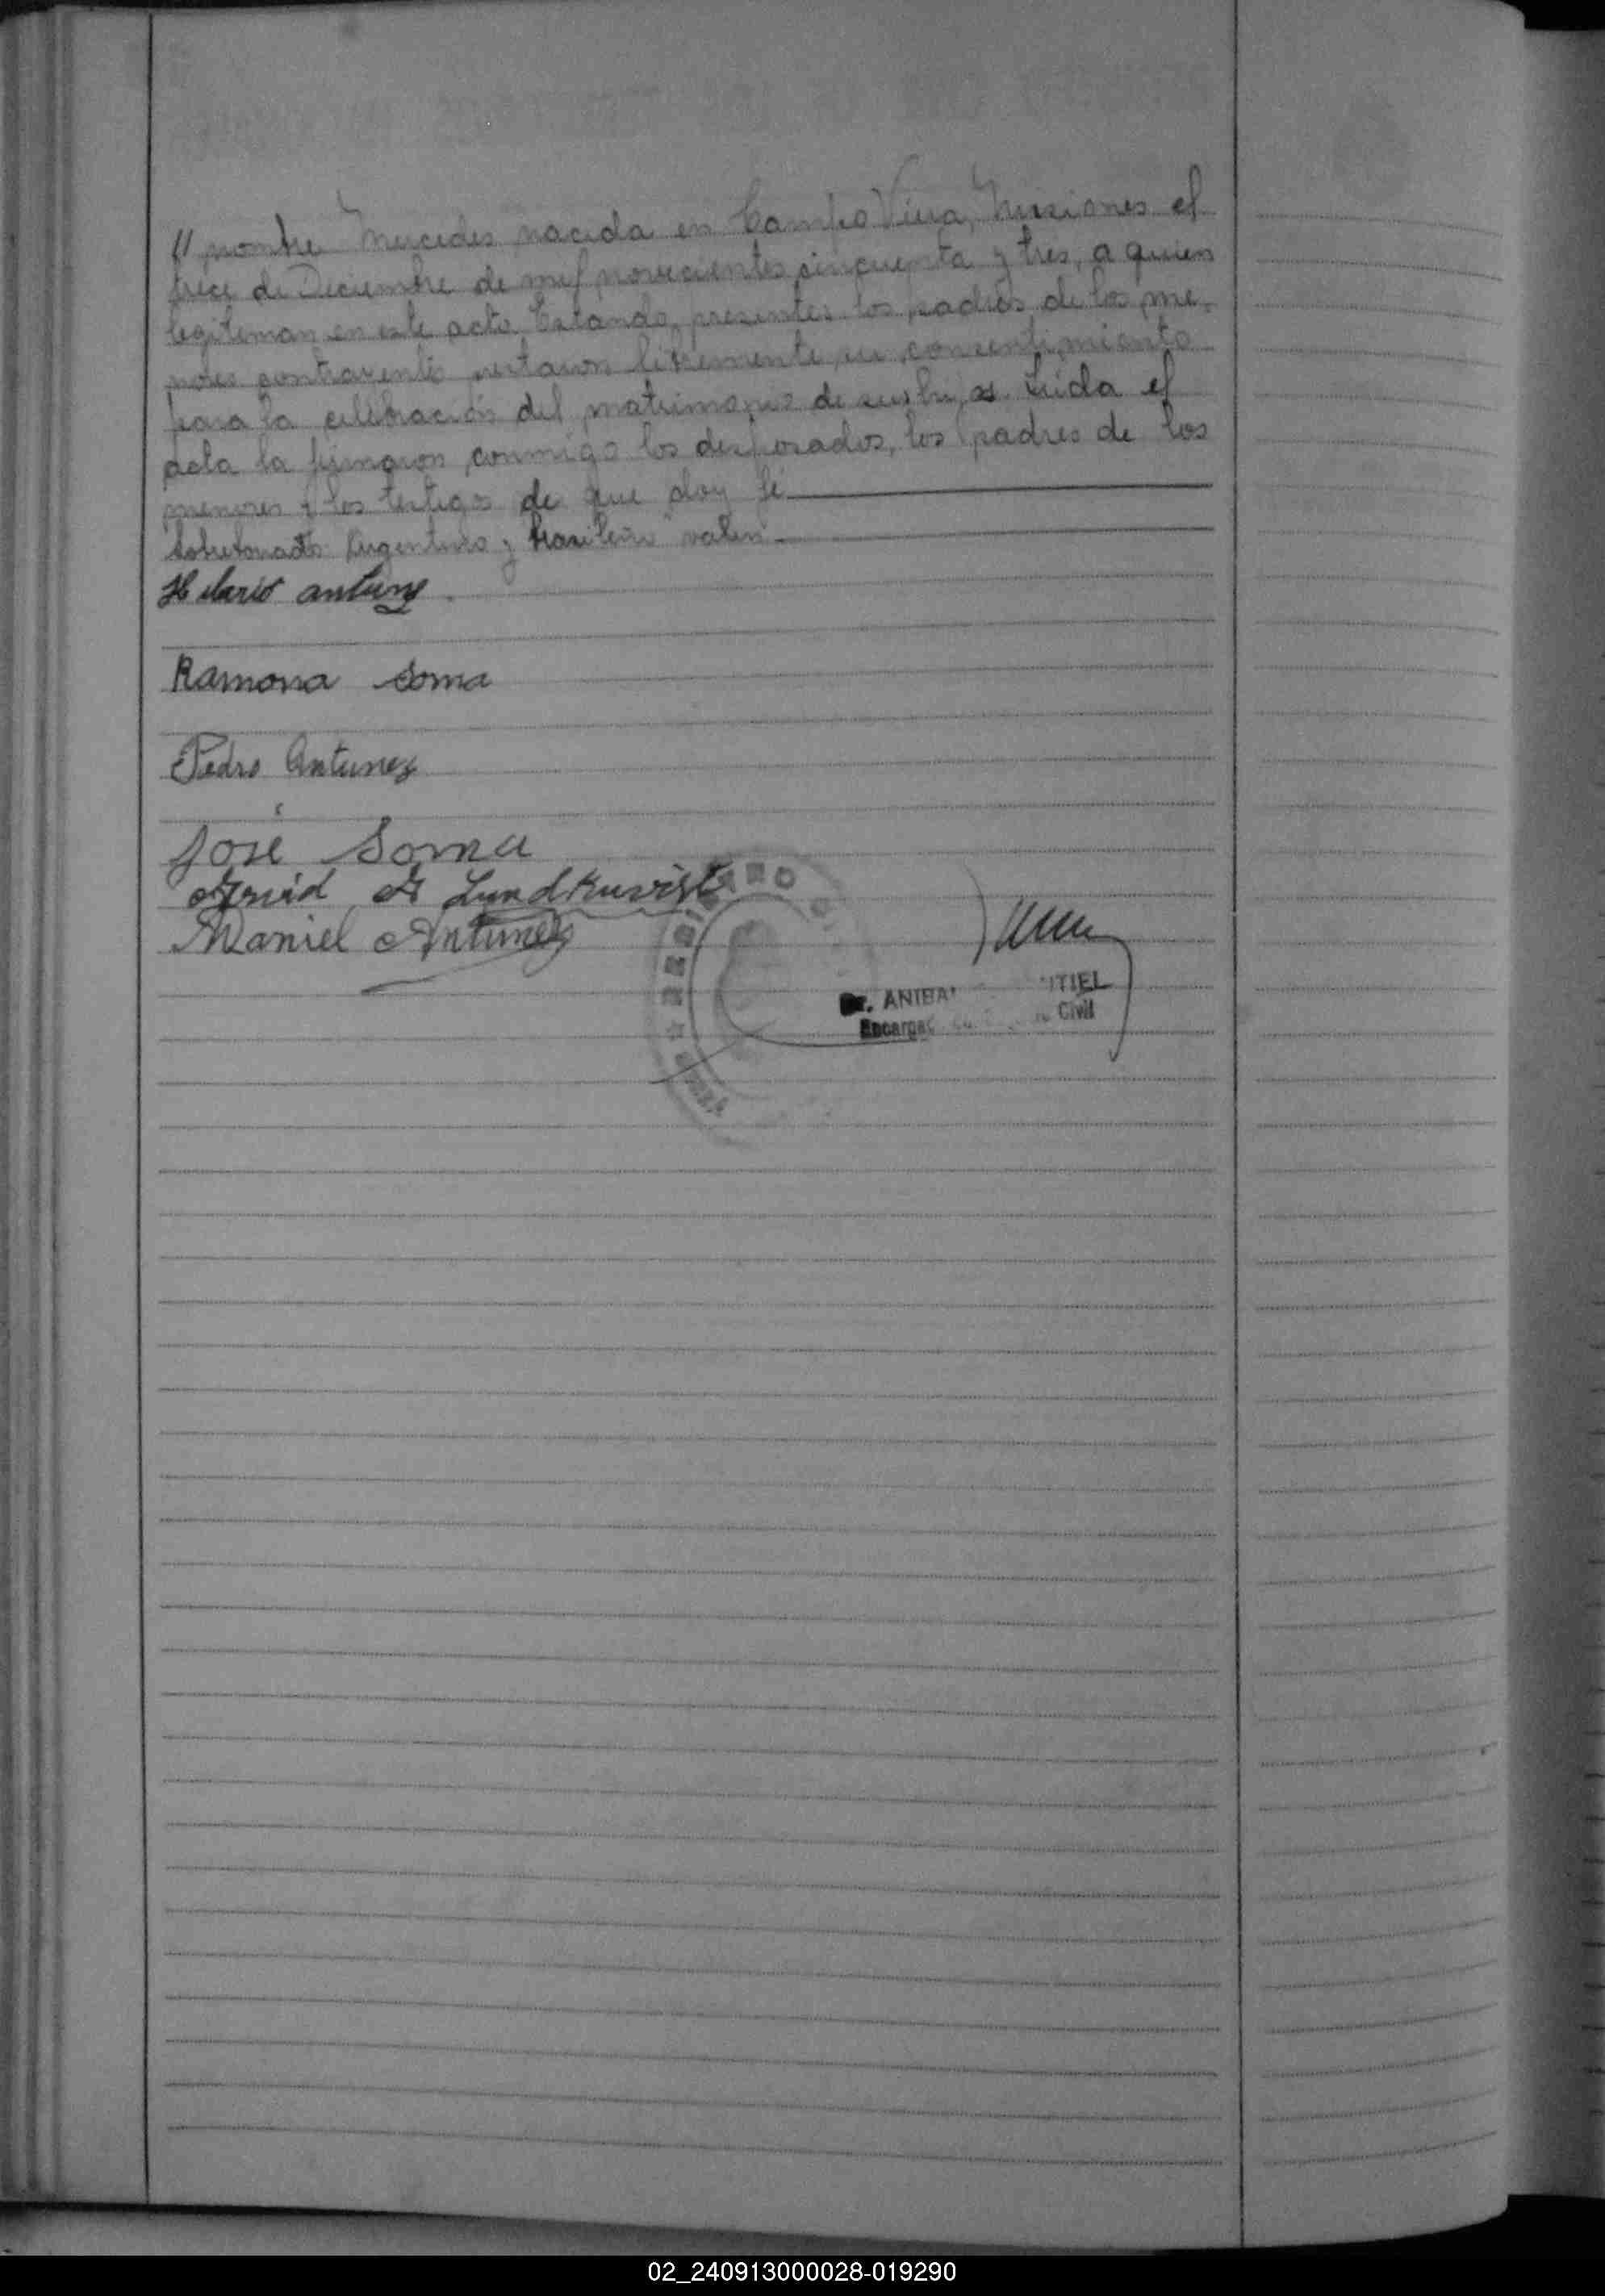 // nombre Mercedes nacida en Campo Viera, Misiones el
trece de Diciembre de mil novecientos cincuenta y tres, a quien
legitiman en este acto. Estando presentes los padres de los me-
nores contrayentes prestaron libremente su consentimiento
para la celebración del matrimonio de sus hijos. Leída el
acta la firmaron conmigo los desposados, los padres de los
menores y los testigos de que doy fé
Sobreborrado Argentino y brasileño valen
Hilario antunez
Ramona Soma
Pedro Antunez
José Soma
A Lundkuvist
Daniel Antunez
Dr. ANIBA TIEL
Encargad Civil
02_240913000028-019290